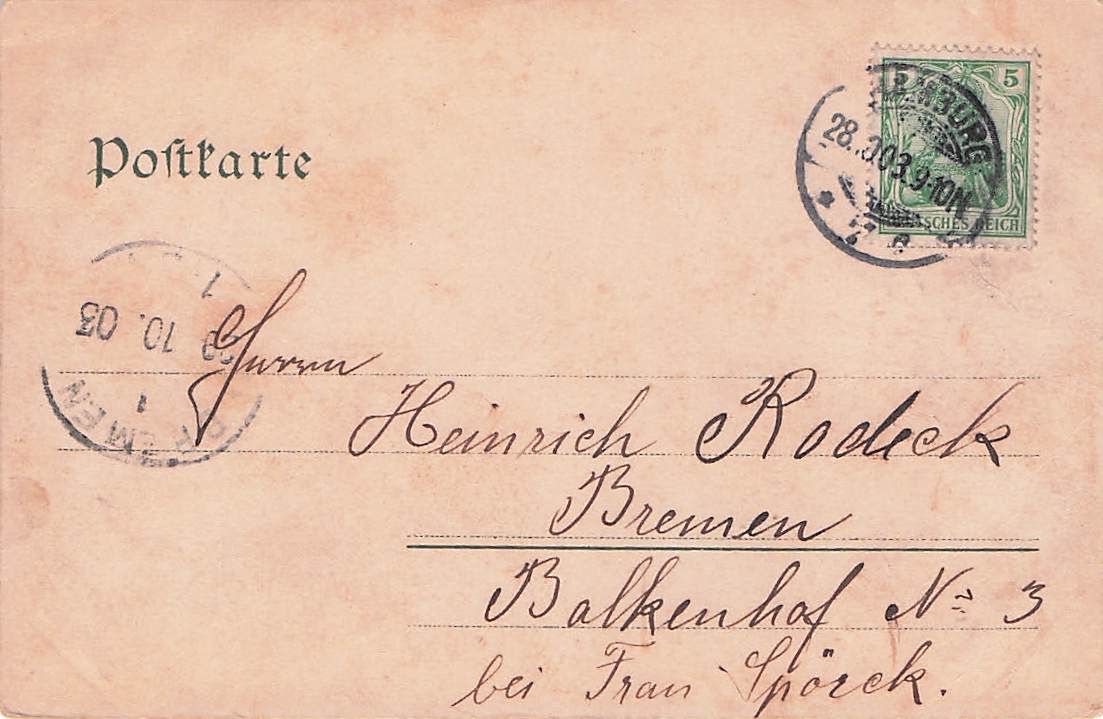 Postkarte
5 5
HAMBURG
28. .03. 9-10N.
DEUTSCHES REICH
1
10. 03
1
BREMEN
Herrn
Heinrich Rodeck
Bremen
Balkenhof No 3
bei Frau Spörck.